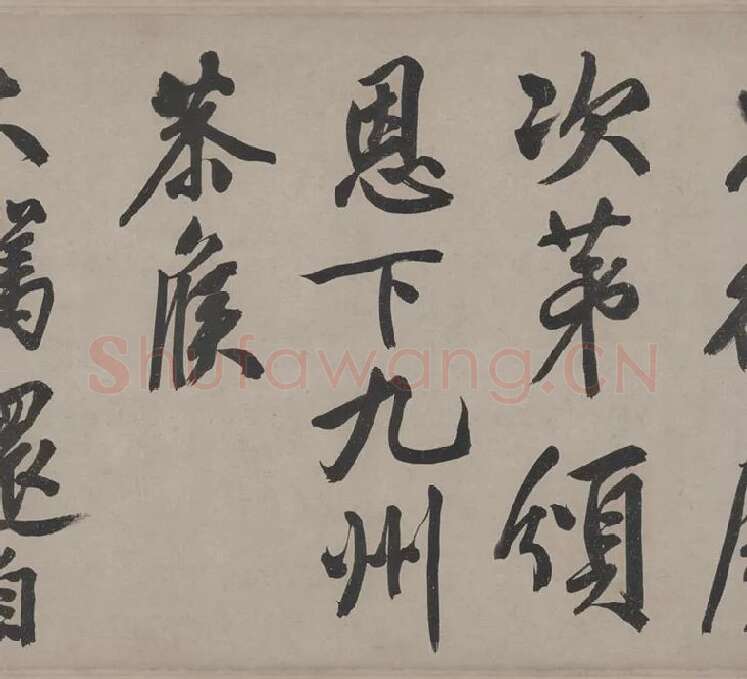 次第頒
恩下九州
茶候
還自
Shufawang.CN